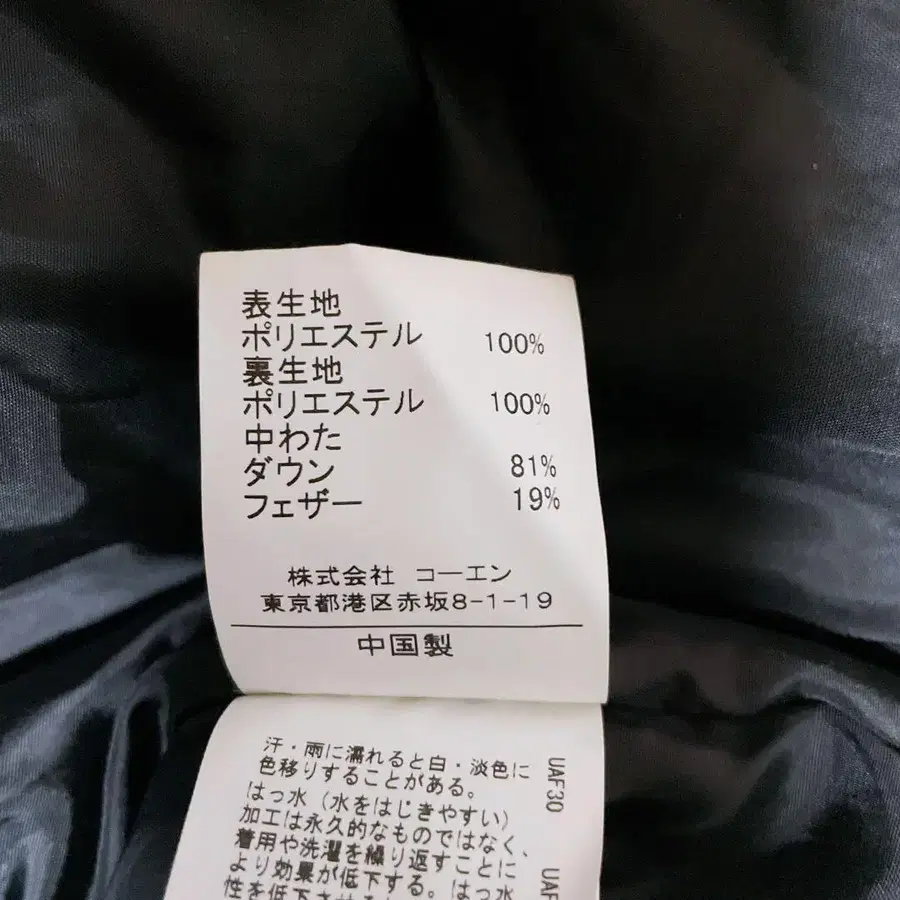 表生地
ポリエステル 100%
裏生地
ポリエステル 100%
中わた
ダウン 81%
フェザー 19%
株式会社 コーエン
東京都港区赤坂8-1-19
中国製
汗・雨に濡れると白・淡色に
色移りすることがある。
はっ水(水をはじきやすい)
加工は永久的なものではなく、
着用や洗濯を繰り返すことに
より効果が低下する。はっ水
性を低下させる
UAF30
UAF